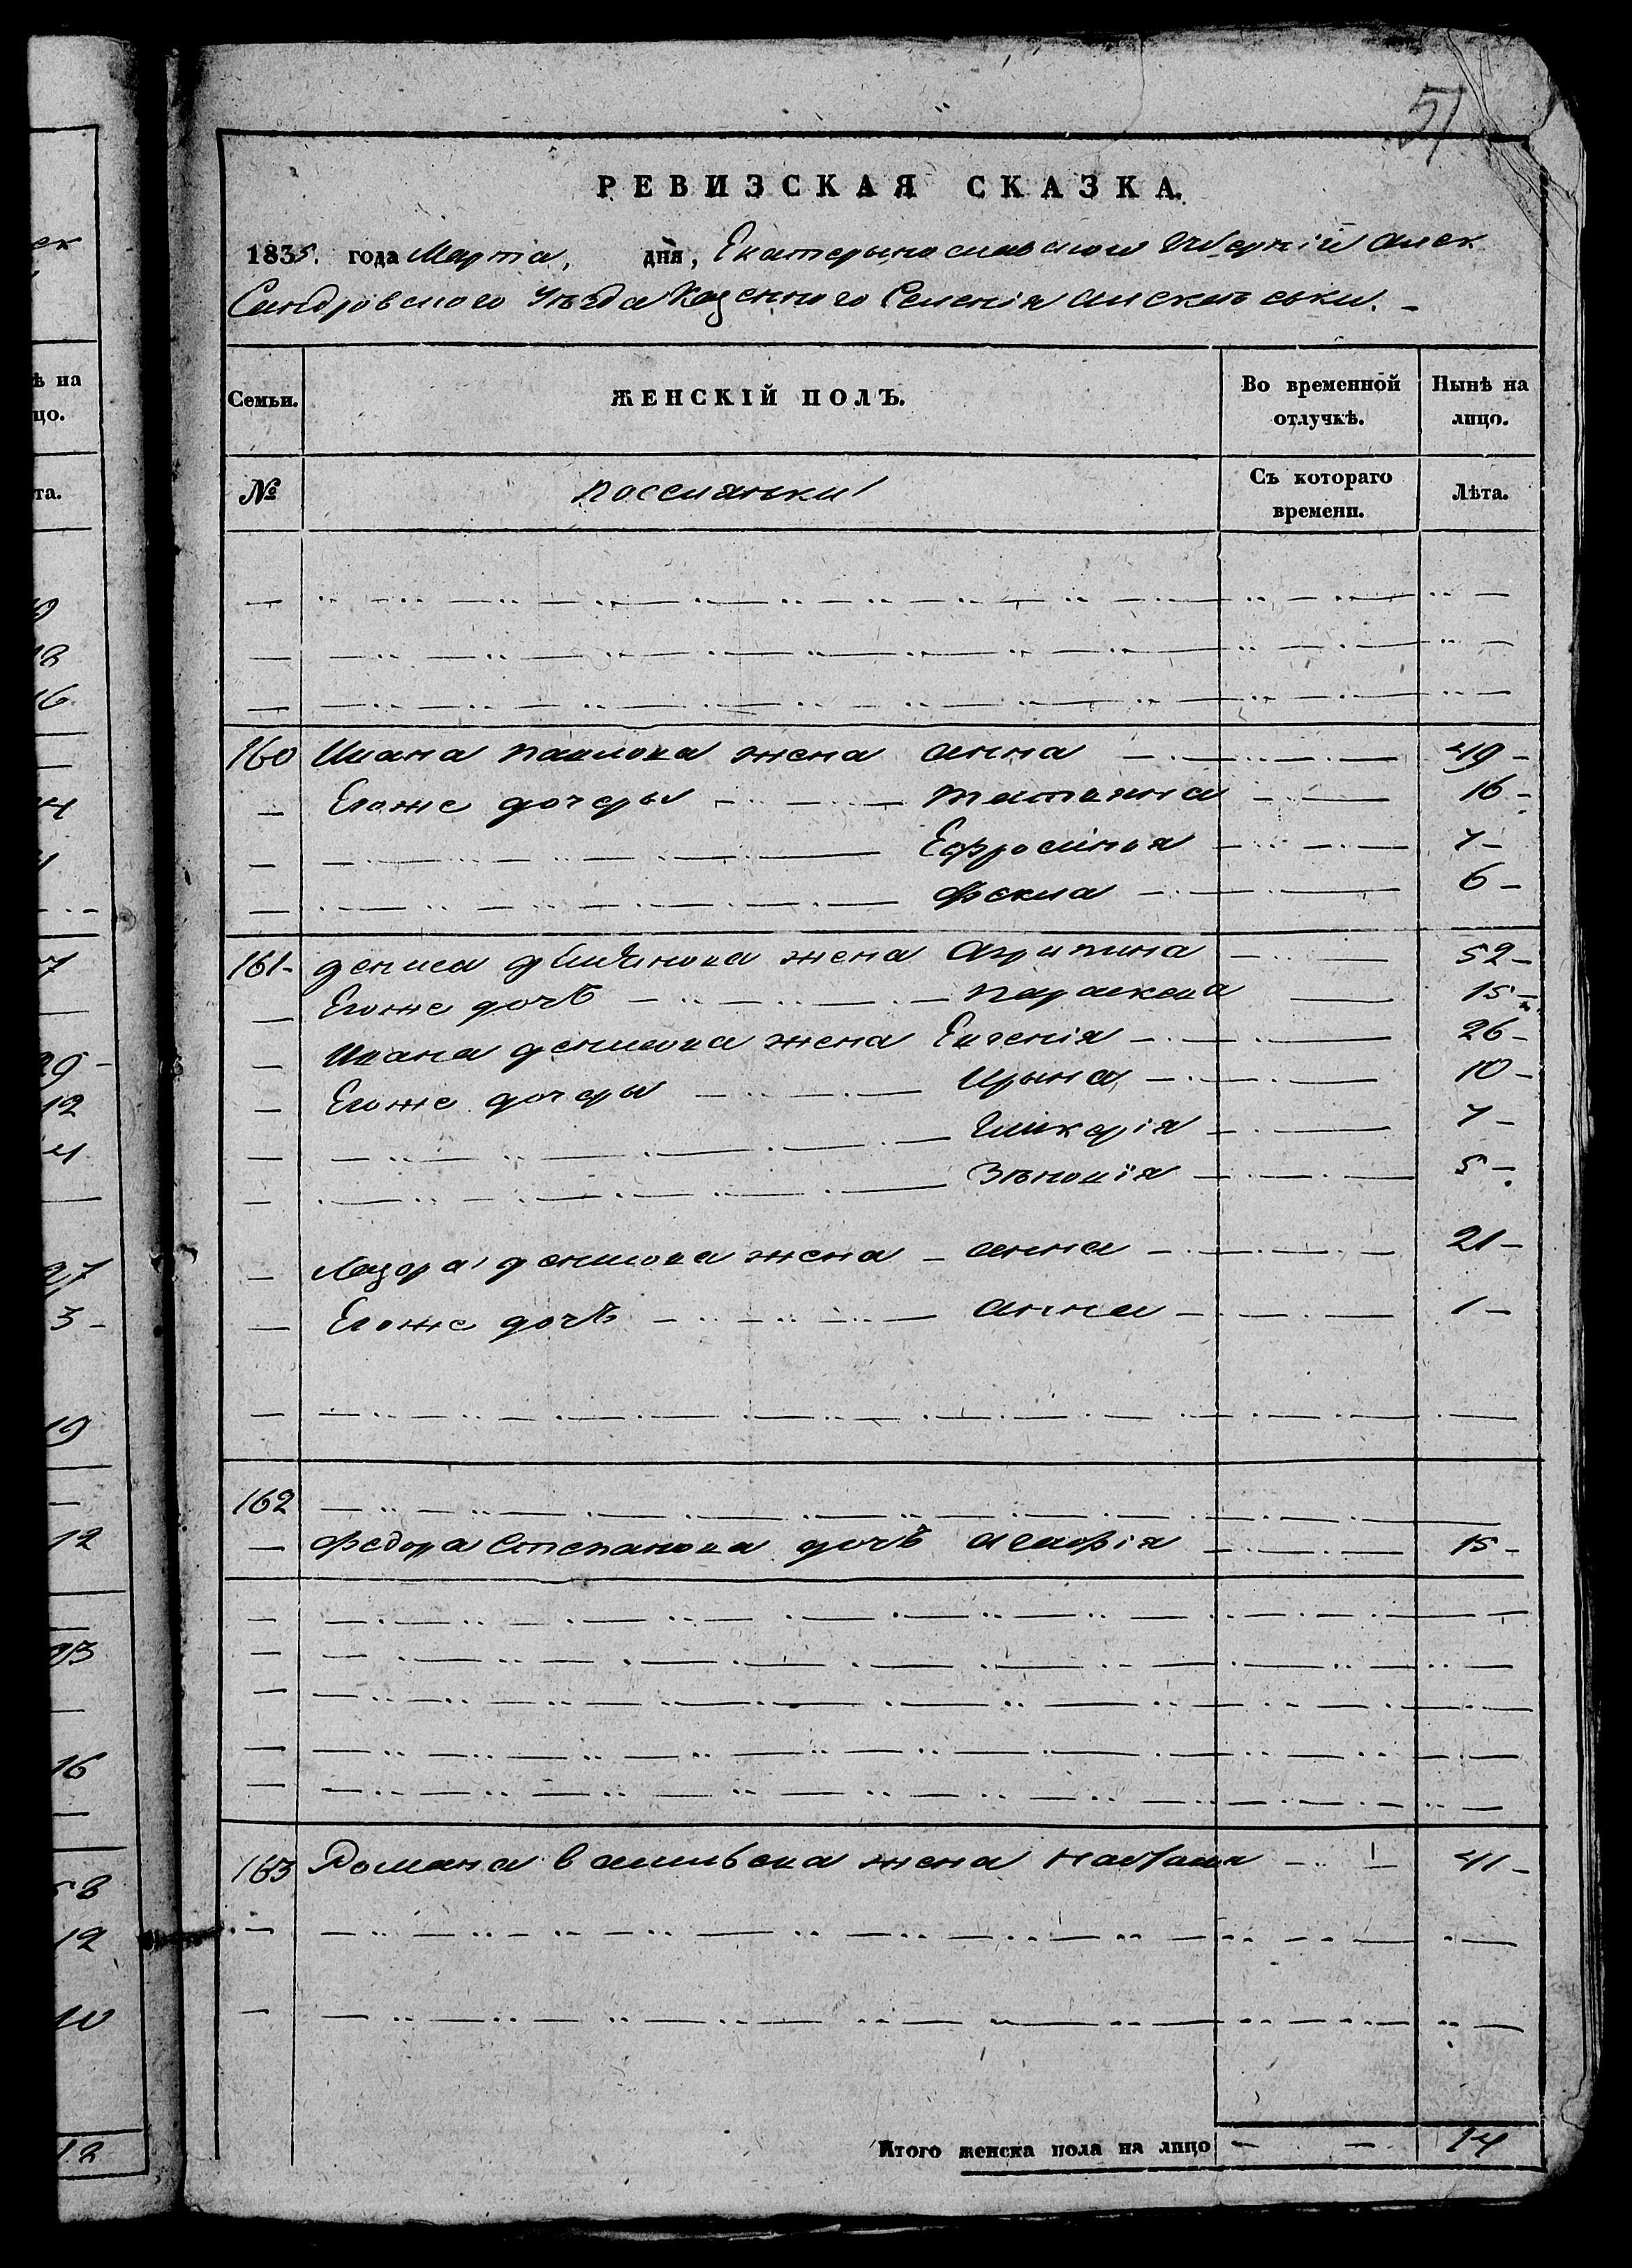 51
РЕВИЗСКАЯ СКАЗКА.
1835. года Марта, дня, Екатерынославской Губерній Алек
Сандровского Уѣзда Казенного Селенія
Семьи. ЖЕНСКІЙ ПОЛЪ. Во временной отлучкѣ. Нынѣ на лицо.
№ поселянки Съ котораго времени. Лѣта.
160 Ивана павлова жена анна 49
Егоже дочеры татияна 16
Ефросіния 7
Фекла 6
161 дениса жена Агрипина 52
Егоже дочь параскева 15
Ивана денисова жена Евгенія 26
Егоже дочеры Ирына 10
Гликерія 7
Зѣновія 5
Лазора денисова жена анна 21
Егоже дочь анна 1
162
Федора Степанова дочь Агафія 15
163 Романа васильева жена Наталия 41
Итого женска пола на лицо 14
ек
ѣ на
цо.
та.
12
16
7
29
12
4
27
3
19
12
93
16
58
12
10
12